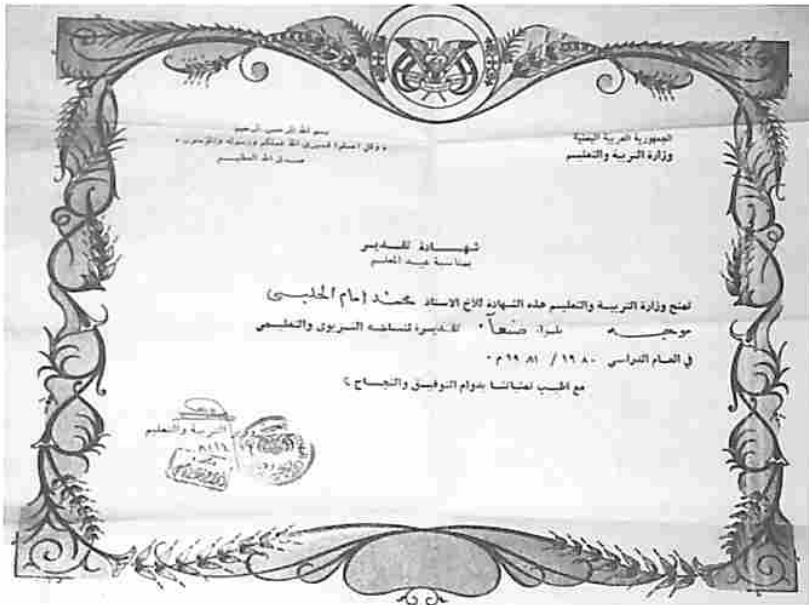 الجمهورية العربية اليمنية
وزارة التربية والتعليم
بسم الله الرحمن الرحيم
« وقل اعملوا فسيرى الله عملكم ورسوله والمؤمنون »
صدق الله العظيم
شهـــادة تقـديـر
بمناسبة عيد المعلم
تمنح وزارة التربية والتعليم هذه الشهادة للأخ الاستاذ محمد إمام الحليبي
موجه بلواء صنعاء تقديرا لنشاطه التربوى والتعليمى
في العام الدراسي ١٩٨٠ / ١٩٨١ م ٠
مع اطيب تمنياتنا بدوام التوفيق والنجاح ؟
التربية والتعليم